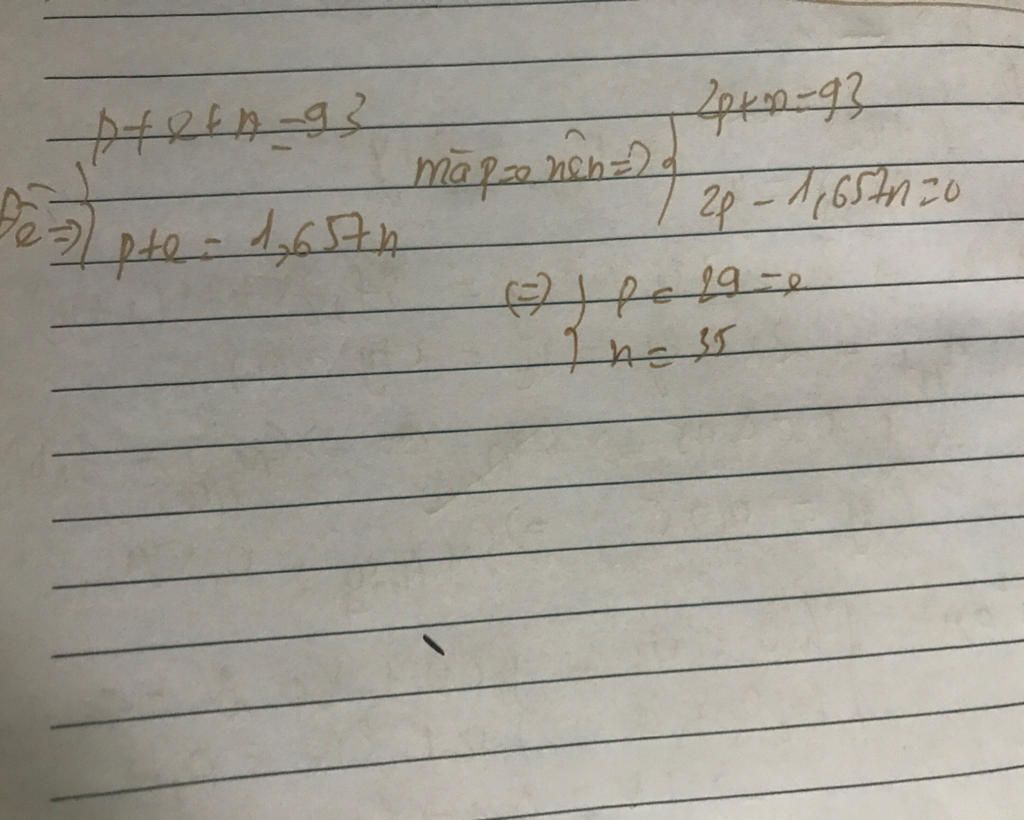 p+e+n=93
Đề => p+e = 1,657n
mà p=e nên => 2p+n=93
2p - 1,657n=0
(=) p = 29 = e
n = 35